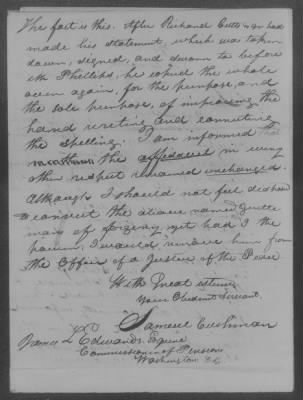 The fact is this. After Richard Cutts
made his statement, which was taken
down, signed, and sworn to before
Mr Phillips, he copied the whole
over again, for the purpose, and
the sole purpose, of improving the
hand writing and correcting
the spelling. I am informed that
the affidavit in every
other respect remained unchanged.
Although I should not feel disposed
to convict the above named gentle
man of forgery yet had I the
power, I would remove him from
the Office of a Justice of the Peace
With great esteem
Your Obedient Servant
Samuel Cushman
James L Edwards Esquire
Commissioner of Pensions
Washington DC